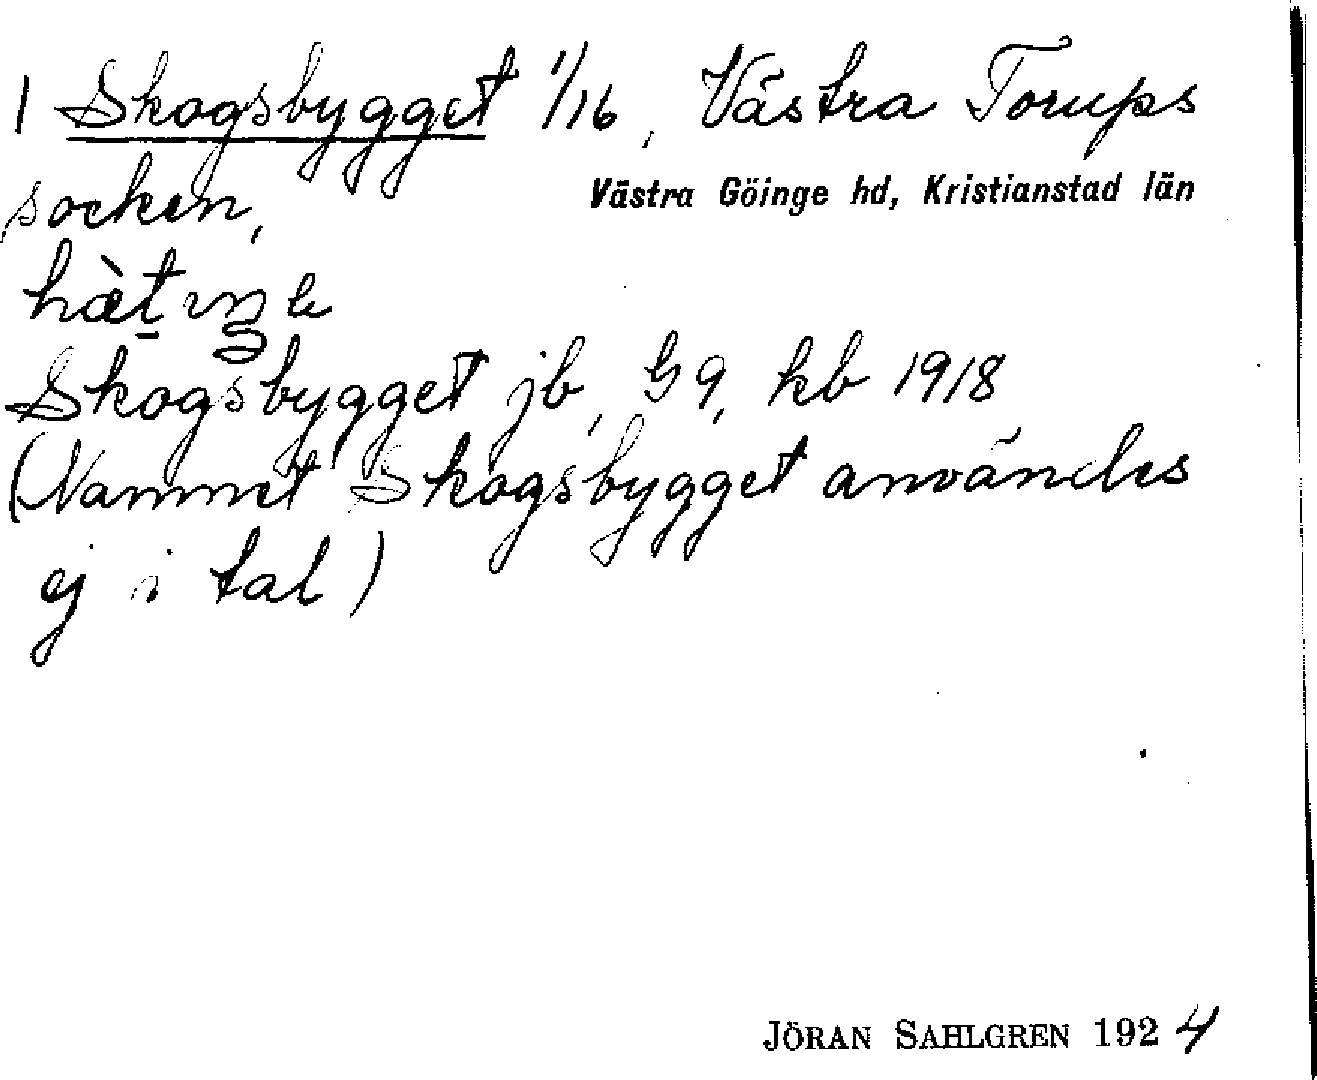 1 Skogsbygget 1/16, Västra Torups
socken,
Västra Göinge hd, Kristianstad län
Skogsbygget jb, G9, kb 1918
(Namnet Skogsbygget användes
ej i tal)
JÖRAN SAHLGREN 1924